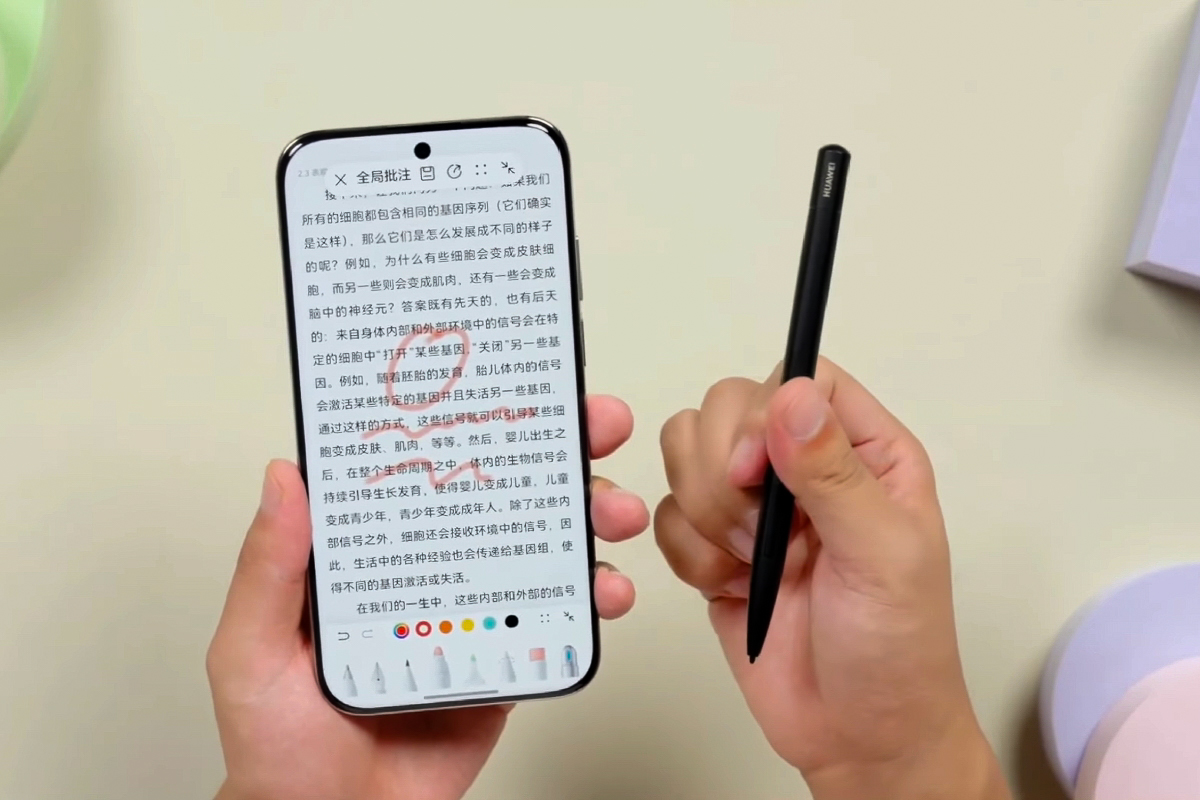 2.3
全局批注
所有的细胞都包含相同的基因序列（它们确实
是这样），那么它们是怎么发展成不同的样子
的呢？例如，为什么有些细胞会变成皮肤细
胞，而另一些则会变成肌肉，还有一些会变成
脑中的神经元？答案既有先天的，也有后天
的：来自身体内部和外部环境中的信号会在特
定的细胞中“打开”某些基因，“关闭”另一些基
因。例如，随着胚胎的发育，胎儿体内的信号
会激活某些特定的基因并且失活另一些基因，
通过这样的方式，这些信号就可以引导某些细
胞变成皮肤、肌肉，等等。然后，婴儿出生之
后，在整个生命周期之中，体内的生物信号会
持续引导生长发育，使得婴儿变成儿童，儿童
变成青少年，青少年变成成年人。除了这些内
部信号之外，细胞还会接收环境中的信号，因
此，生活中的各种经验也会传递给基因组，使
得不同的基因激活或失活。
在我们的一生中，这些内部和外部的信号
HUAWEI